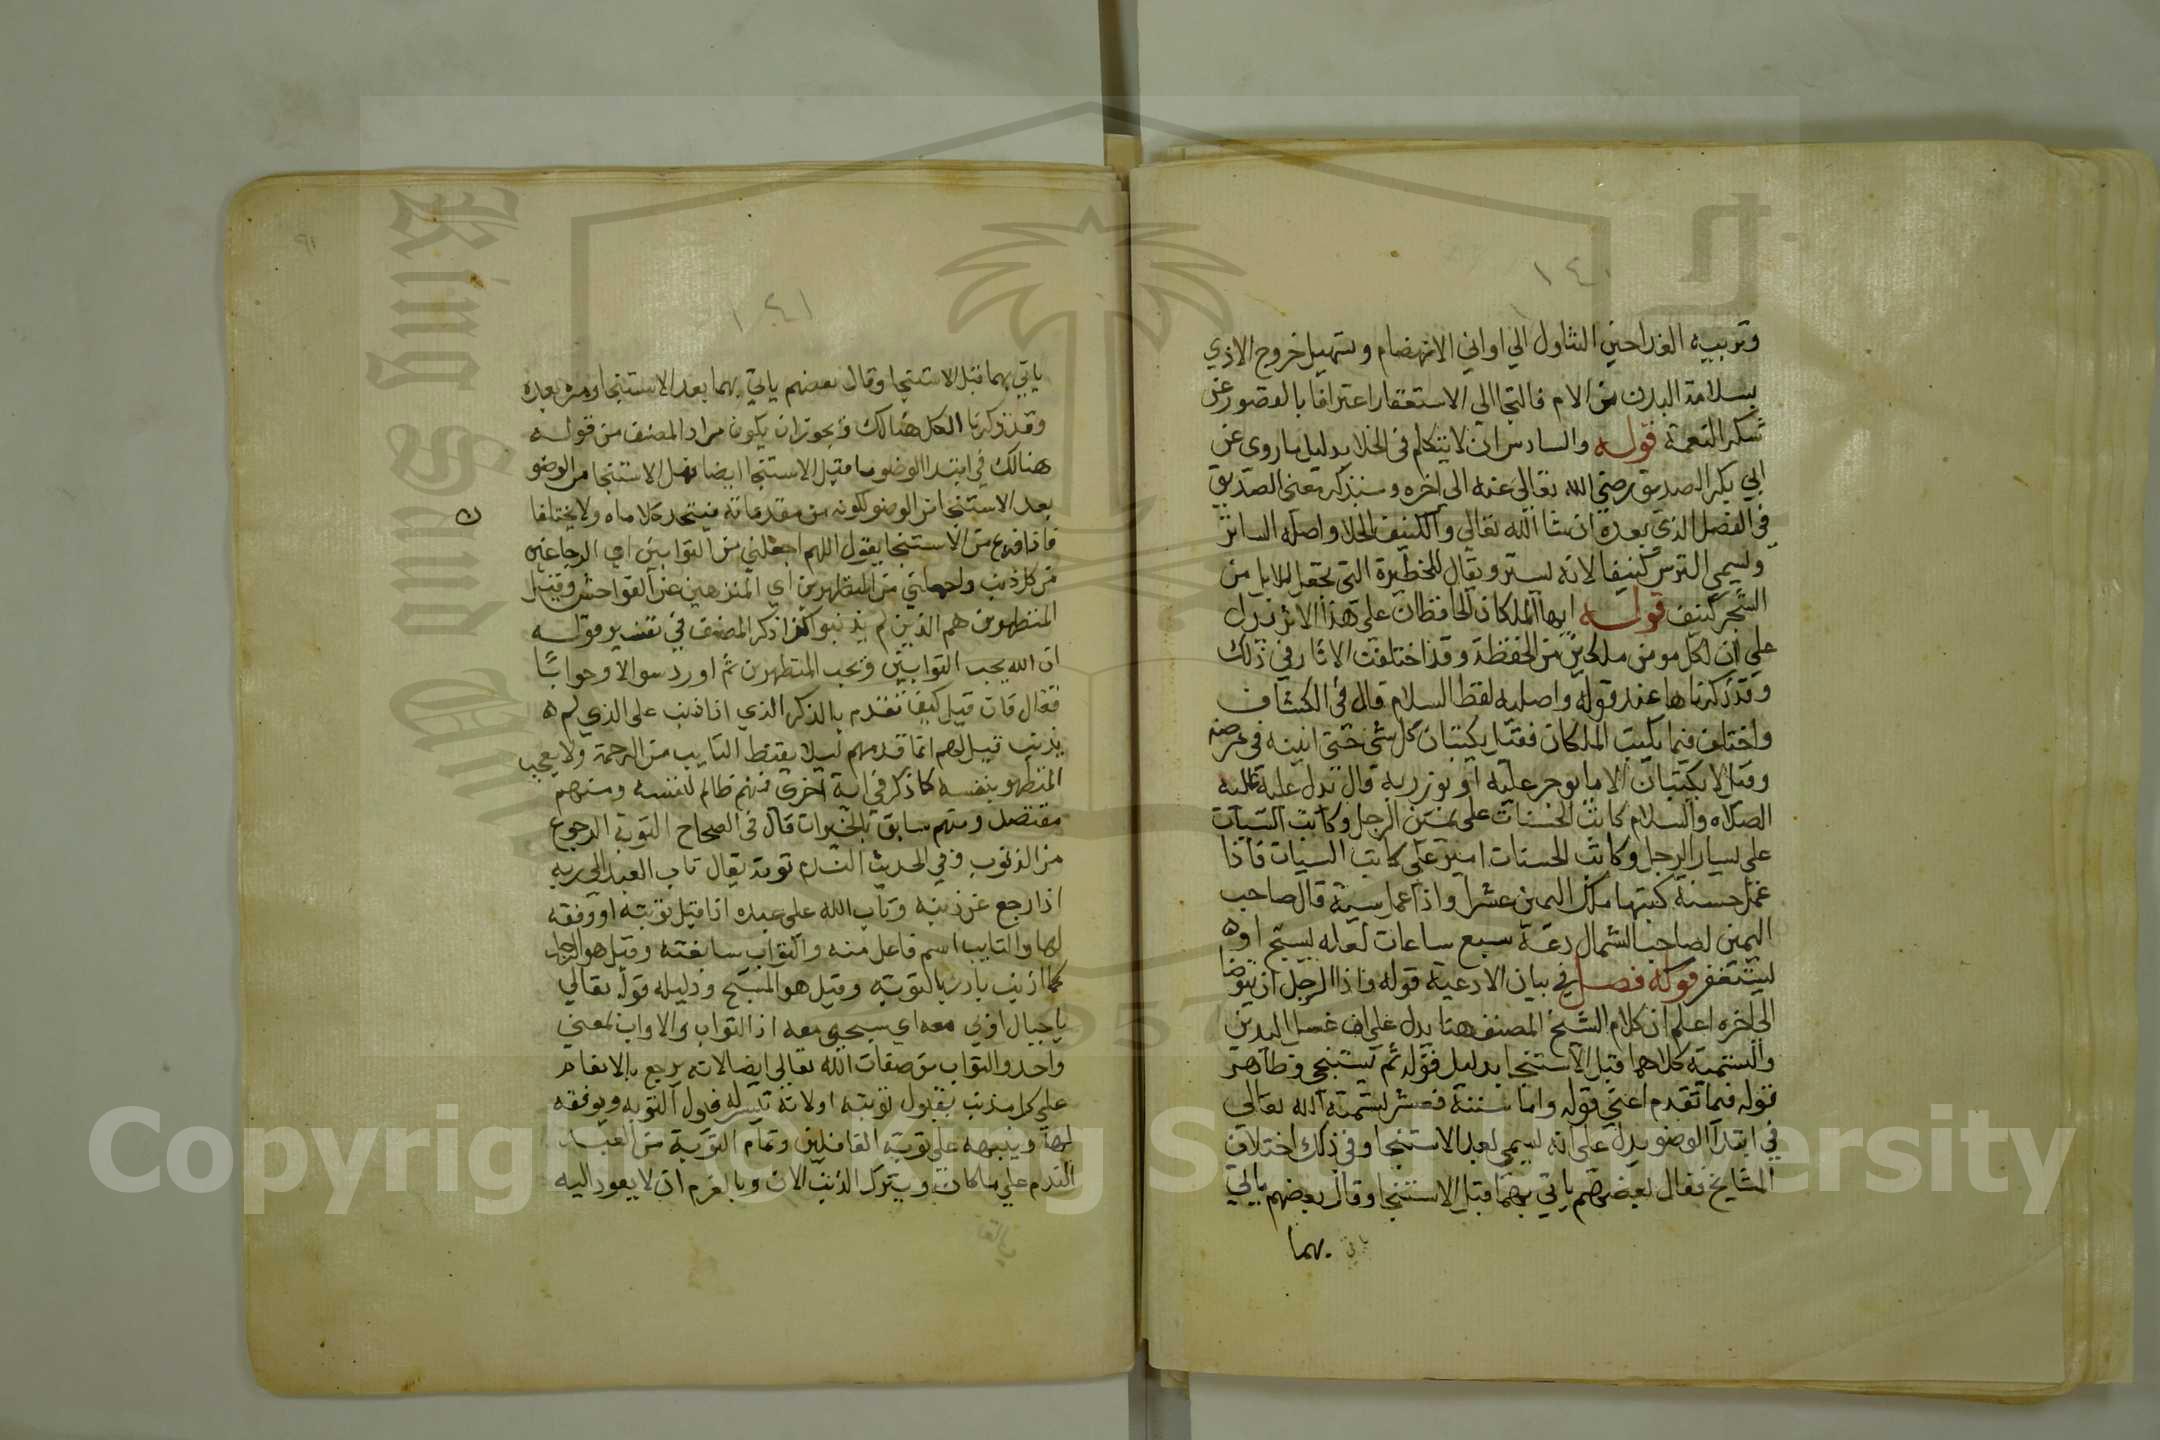 ١٤٠
وتربيه الغذا حين التناول الي اواني الانهضام وتسهيل خروج الاذي
بسلامة البدن من الالام فالتجا الي الاستغفار اعترافا بالقصور عن
شكر النعمة قوله والسادس ان لا يتكلم في الخلا بدليل ما روي عن
ابي بكر الصديق رضي الله تعالى عنه الى اخره وسنذكر معنى الصديق
في الفصل الذي بعده ان شا الله تعالى والكنيف الخلا واصله الساتر
ويسمي الترس كنيفا لانه يستر ويقال للحظيرة التي تجعل للابل من
الشجر كنيف قوله ايها الملكان الحافظان على هذا الاثر يدل
على ان لكل مومن ملكين من الحفظة وقد اختلفت الاثار في ذلك
وقد ذكرناها عند قوله واصابه لفظ السلام قال في الكشاف
واختلف فيما يكتب الملكان فقيل يكتبان كل شي حتى انينه في مرضه
وقيل لا يكتبان الا ما يوجر عليه او يوزر به قال يدل عليه عليه
الصلاه والسلام كاتب الحسنات على يمين الرجل وكاتب السيات
على يسار الرجل وكاتب الحسنات امير على كاتب السيات فاذا
عمل حسنة كتبها ملك اليمين عشرا واذا عمل سيئة قال صاحب
اليمين لصاحب الشمال دعه سبع ساعات لعله يسبح او
يستغفر قوله فصل في بيان الادعية قوله فاذا الرجل ان يتوضا
الى اخره اعلم ان كلام الشيخ المصنف هنا يدل على ان غسل اليدين
والتسمية كلاهما قبل الاستنجا بدليل قوله ثم يستنجي وظاهر
قوله فيما تقدم اعني قوله واما سننه فعشر تسمية الله تعالى
في ابتدا الوضو يدل على انه يسمي بعد الاستنجا وفي ذلك اختلاف
المشايخ فقال بعضهم ياتي بهما قبل الاستنجا وقال بعضهم ياتي
ياتي بهما
٩١
١٤١
ياتي بهما قبل الاستنجا وقال بعضهم ياتي بهما بعد الاستنجا ومره بعده
وقد ذكرنا الكل هنالك ويجوز ان يكون مراد المصنف من قوله
هنالك في ابتدا الوضو ما قبل الاستنجا ايضا فهل الاستنجا من الوضو
بعد الاستنجا من الوضو لكونه من مقدماته فيتحد كلاماه ولا يختلفا
ن
فاذا فرغ من الاستنجا يقول اللهم اجعلني من التوابين اي الرجاعين
من كل ذنب واجعلني من المتطهرين اي المتنزهين عن الفواحش وقيل
المتطهرون هم الذين لم يذنبوا كذا ذكر المصنف في تفسير قوله
ان الله يحب التوابين ويحب المتطهرين ثم اورد سوالا وجوابا
فقال فان قيل كيف تقدم بالذكر الذي اذا ذنب على الذي لم
يذنب قيل لهم انما قدمهم ليلا يقنط التايب من الرحمة ولا يعجب
المتطهر بنفسه كما ذكر في اية اخرى فمنهم ظالم لنفسه ومنهم
مقتصد ومنهم سابق بالخيرات قال في الصحاح التوبة الرجوع
من الذنوب وفي الحديث الندم توبة يقال تاب العبد الى ربه
اذا رجع عن ذنبه وتاب الله على عبده اذا قبل توبته او وفقه
لها والتايب اسم فاعل منه والتواب سابغته وقيل هو الرجل
كلما اذنب بادر بالتوبة وقيل هو المسبح ودليله قوله تعالي
يا جبال اوبي معه اي سبحي معه اذ التواب والاواب بمعني
واحد والتواب من صفات الله تعالى ايضا لانه يرجع بالانعام
على كل مذنب بقبول توبته او لانه تيسر له قبول التوبه ويوفقه
لها وينبهه على توبة الغافلين وتمام التوبة من العبد
الندم على ما كان ويترك الذنب الان وبالعزم ان لا يعود اليه
Copyright © King Saud University
King Saud University
1957